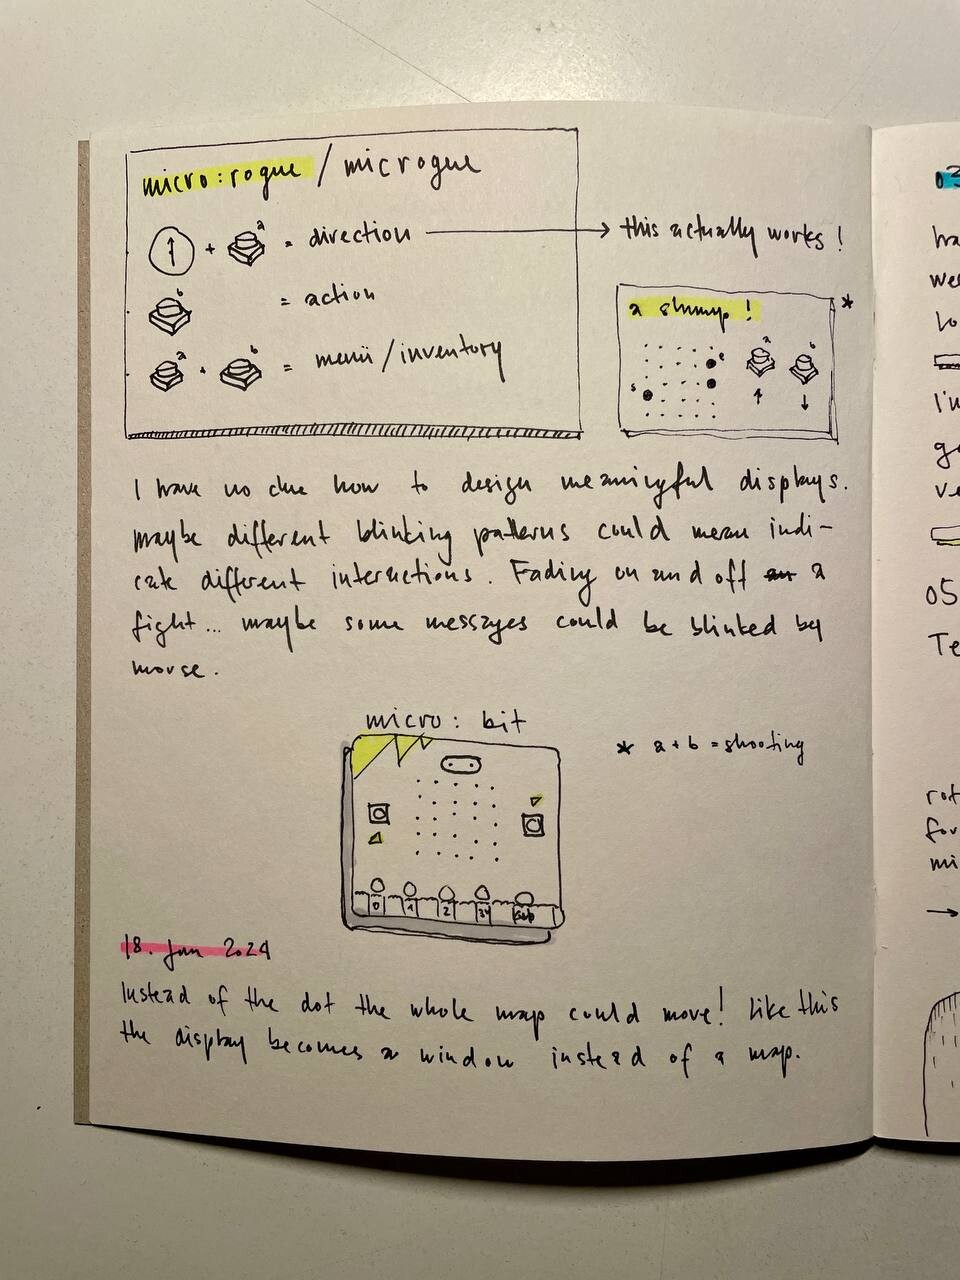 micro:rogue / microgue
a
↑ + = direction → this actually works!
b
= action
a b
+ = menü / inventory
a shmup! *
a b
e
s
↑ ↓
I have no clue how to design meaningful displays.
maybe different blinking patterns could mean indi-
cate different interactions. Fading on and off a
fight... maybe some messages could be blinked by
morse.
micro: bit
* a + b = shooting
0 1 2 3V
18. Jun 2024
Instead of the dot the whole map could move! Like this
the display becomes a window instead of a map.
03
ha
we
lo
I'm
ge
ve
05
Te
rot
for
mi
→